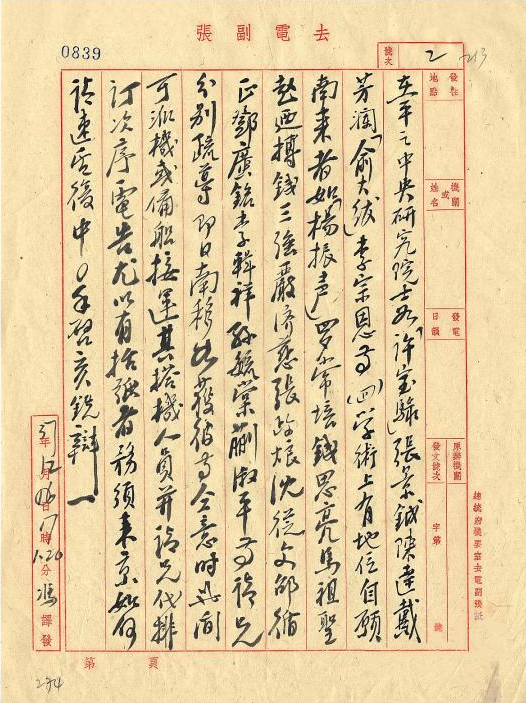 去電副張
0839
號次 2
213
發往地點
機關或姓名
發電日韻
原辦機關發文號次
字第 號
在平之中央研究院士如「許寶騄」張景鉞陳達戴
芳瀾「俞大紱」李宗恩等(四)學術上有地位自願
南來者如「楊振声」羅常培錢思亮馬祖聖
趙迺摶錢三強嚴濟慈張政烺沈從文邵循
正鄧廣銘李輯祥孫毓棠蒯淑平等請兄
分別疏導即日南移如獲彼等仝意時與洵
可派機或備船接運其搭機人員並請兄代排
訂次序電告尤以有括弧者務須来京如何
請速告後中〇手啟亥銑辯一
37年12月16日 時1.20分馮譯發
總統府機要室去電副張紙
第 頁
234